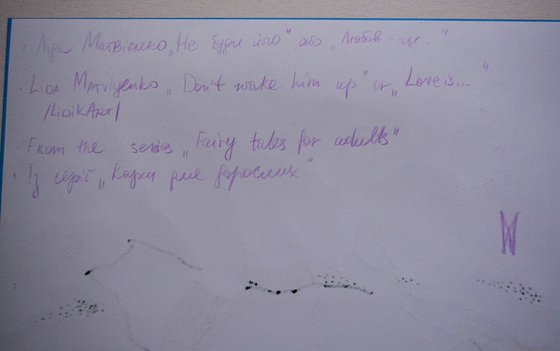 · Ліда Матвієнко „Не буди його" або „Любов - це..."
· Lida Matviyenko „Don't wake him up" or „Love is... "
/LidikArt/
· From the series „Fairy tales for adults"
· Із серії „Казки для дорослих"